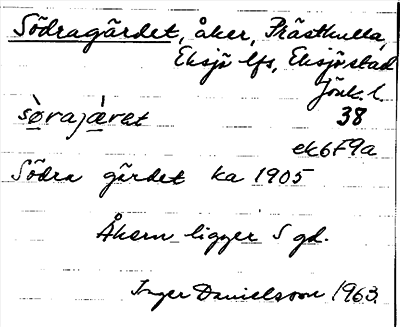 Södragärdet, åker, Prästkulla,
Eksjö lfs, Eksjö stad
Jönk. l.
sø̀rajæ̀ret 38
ek6F9a
Södra gärdet ka 1905
Åkern ligger S gd.
Inger Danielsson 1963.